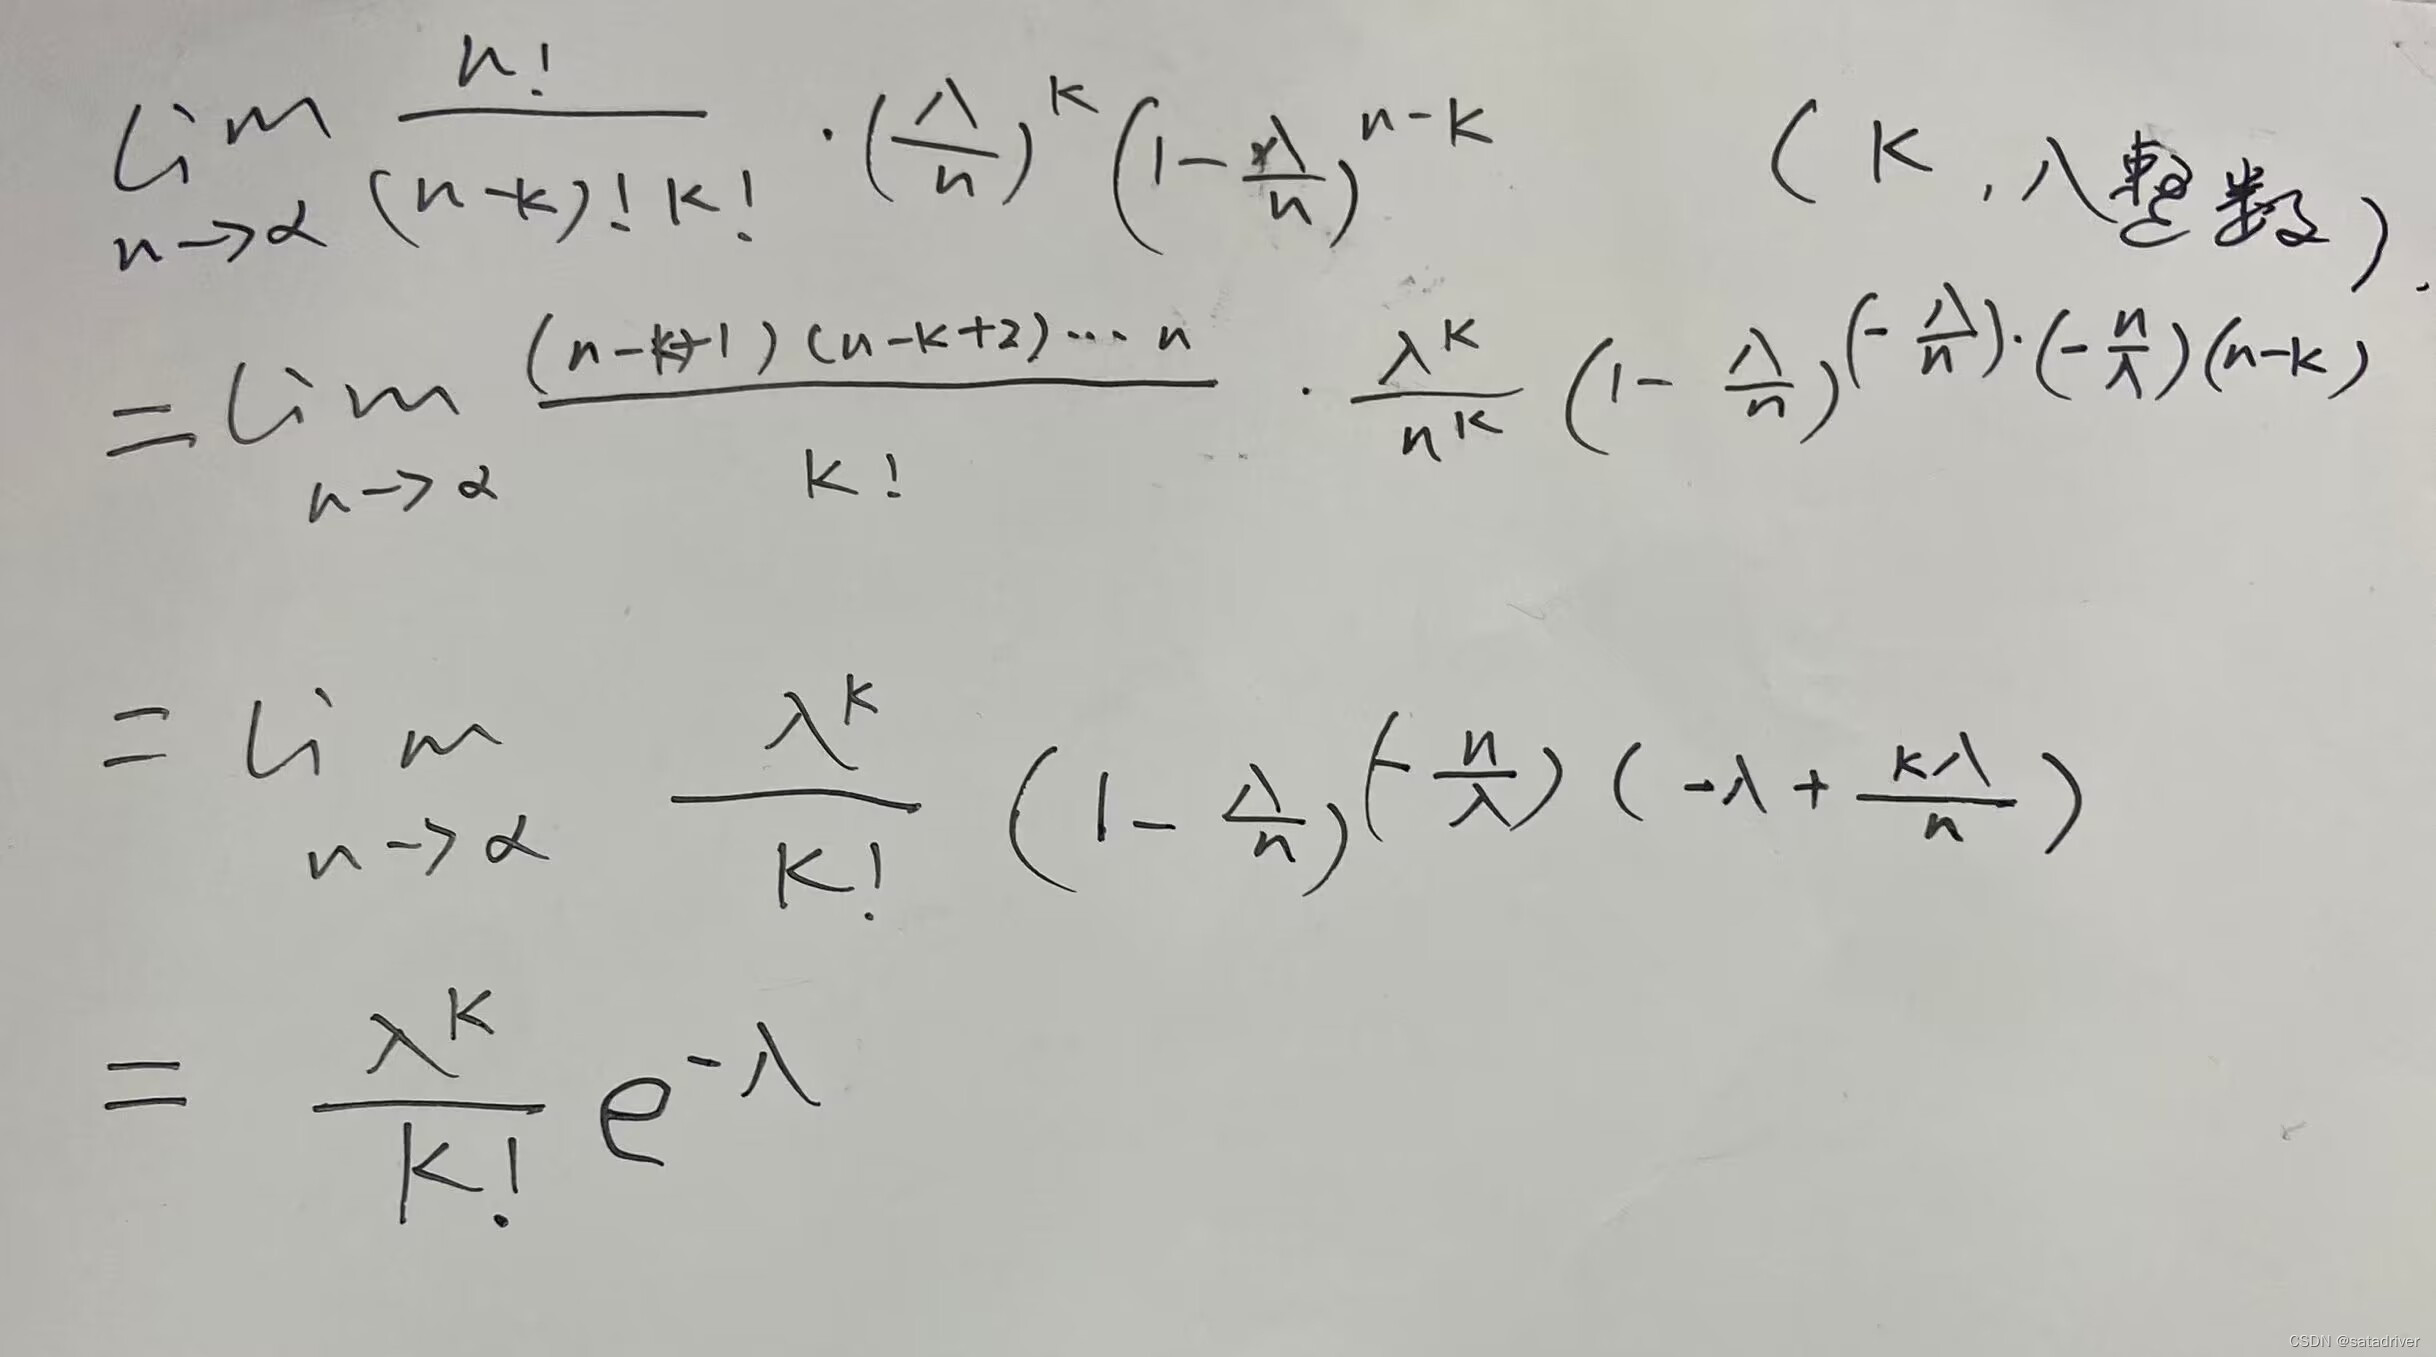 lim n→α n!/(n-k)!k! · (λ/n)^k (1-λ/n)^(n-k) (k,λ整数).
= lim n→α (n-k+1)(n-k+2)…n/k! · λ^k/n^k (1-λ/n)^((-λ/n)·(-n/λ)(n-k))
= lim n→α λ^k/k! (1-λ/n)^((-n/λ)(-λ+kλ/n))
= λ^k/k! e^(-λ)
CSDN @satadriver